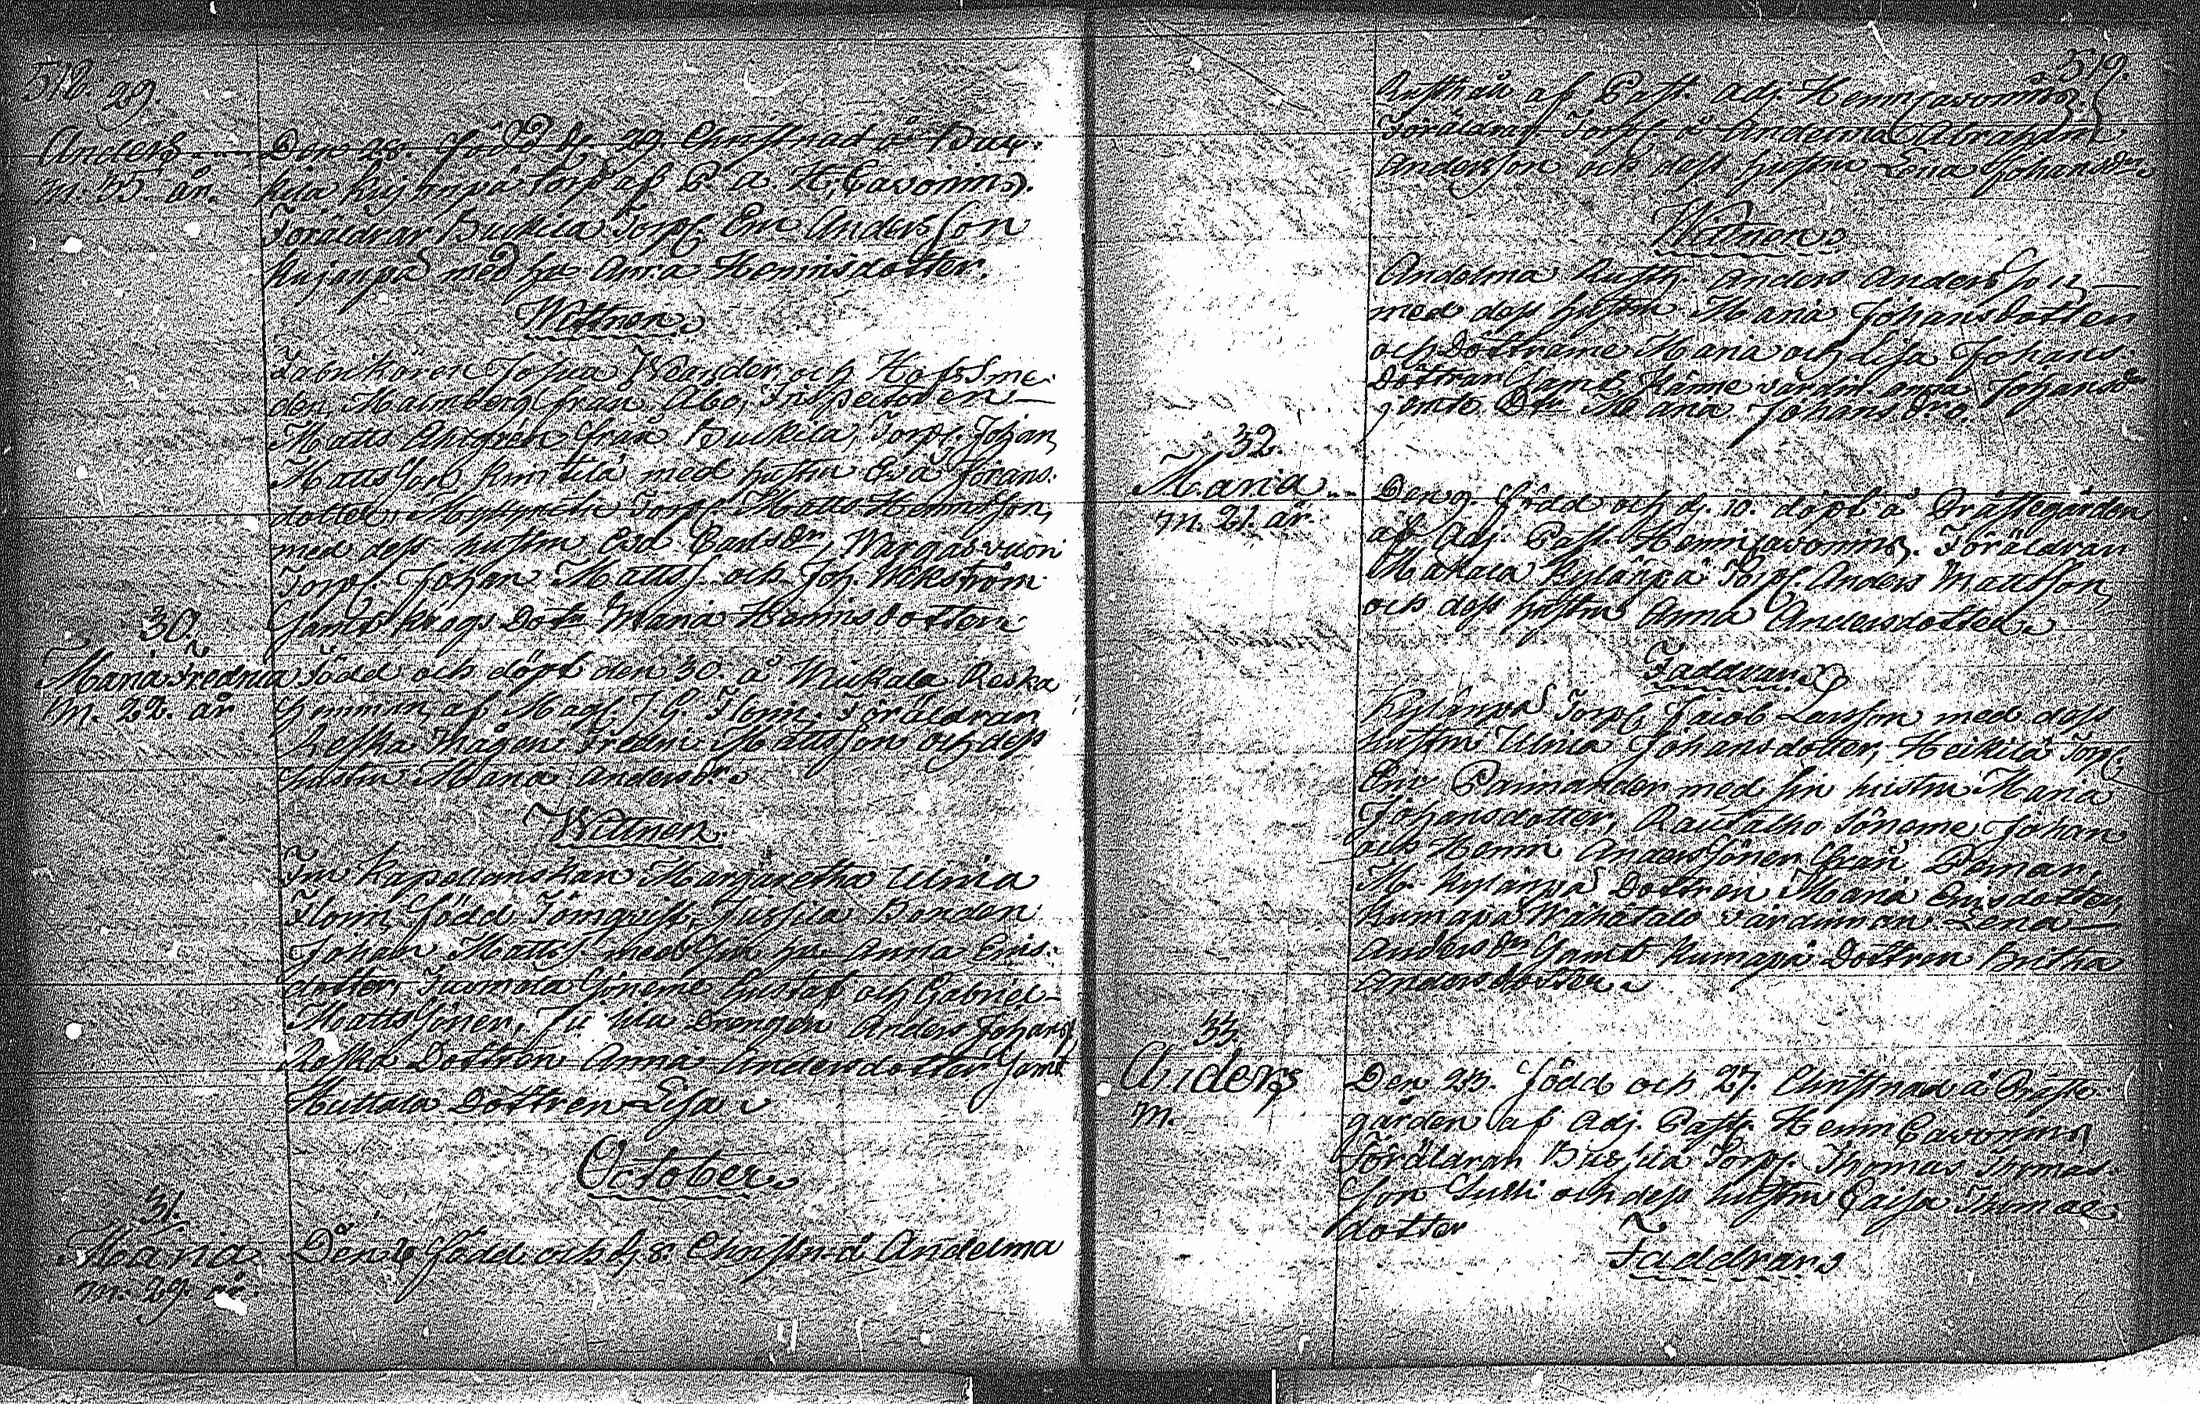 518.
29.
Anders
m. 35. år.
Den 28. född d. 29 Christnad å Buc-
kila torp af P. A. H. Cavonius.
Föräldrar Buckila Torp. Eric Andersson
med h. Anna Henricsdotter.
Wittnen
Fabrikören Josua Wander och Hofsme-
den Malmberg från Åbo, Inspectoren
Matts från Buckila, Torp. Johan
Mattsson med hustru Eva Jörans-
dotter, Torp. Matts Henricsson,
med dess hustru Eva Carlsdr, Wargasvuori
Torp. Johan Mattss. och Joh. Wikström
samt Krogs Dotr Maria Henricsdotter
30.
Maria Fredrica
m. 22. år
Född och döpt den 30. å Wiukala Reska
hemman af Mag. J G Florin. Föräldrar
Reska Mågen Fredric Mattsson och dess
hustru Maria Andersdr
Wittnen
Fru Kapellanskan Margaretha Ulrica
Florin född Törnqvist, Jussila Bonden
Johan Mattss. med sin hu Anna Erics-
dotter, Tuomola Sönerne Gustaf och Gabriel
Mattssöner, Drengen Anders Johanss.
Reska Dottren Anna Andersdotter samt
Huttala Dottren Lisa
October
31.
Maria
m. 29. år.
Den 6 född och d. 8. Christn. å Andelma
519.
Rusthåll af Past. Adj. Henric Cavonius.
Föräldrar Torp. å Andelma Abraham
Andersson och dess hustru Lena Johansdr
Wittnen
Andelma Rusth. Anders Andersson
med dess hustru Maria Johansdotter
och Döttrarne Maria och Lisa Johans
Döttrar samt värdin. Anna Johansdr
jemte Dr Maria Johansdr.
32.
Maria
m. 21. år.
Den 9. född och d. 10. döpt å Prästegården
af Adj. Past. Henric Cavonius. Föräldrar
Kylänpä Torp. Anders Mattsson,
och dess hustru Anna Andersdotter
Faddrar
Kylänpä Torp. Jacob Larsson med dess
hustru Ulrica Johansdotter, Heikilä Torp.
Eric Parmander med sin hustru Maria
Johansdotter, Rautalho Sönerne Johan
och Henric Anderssöner från Pemar,
M. Kylänpä Dottren Maria Ericsdotter
Kumapä värdinnan Lena
Andersdr samt Kumapä Dottren Britha
Andersdotter
33.
Anders
m.
Den 23. född och 27. Christnad å Präste-
gården af Adj. Past. Henric Cavonius,
Föräldrar Torp. Thomas Thomas-
son och dess hustru Caisa Thomae
dotter
Faddrar